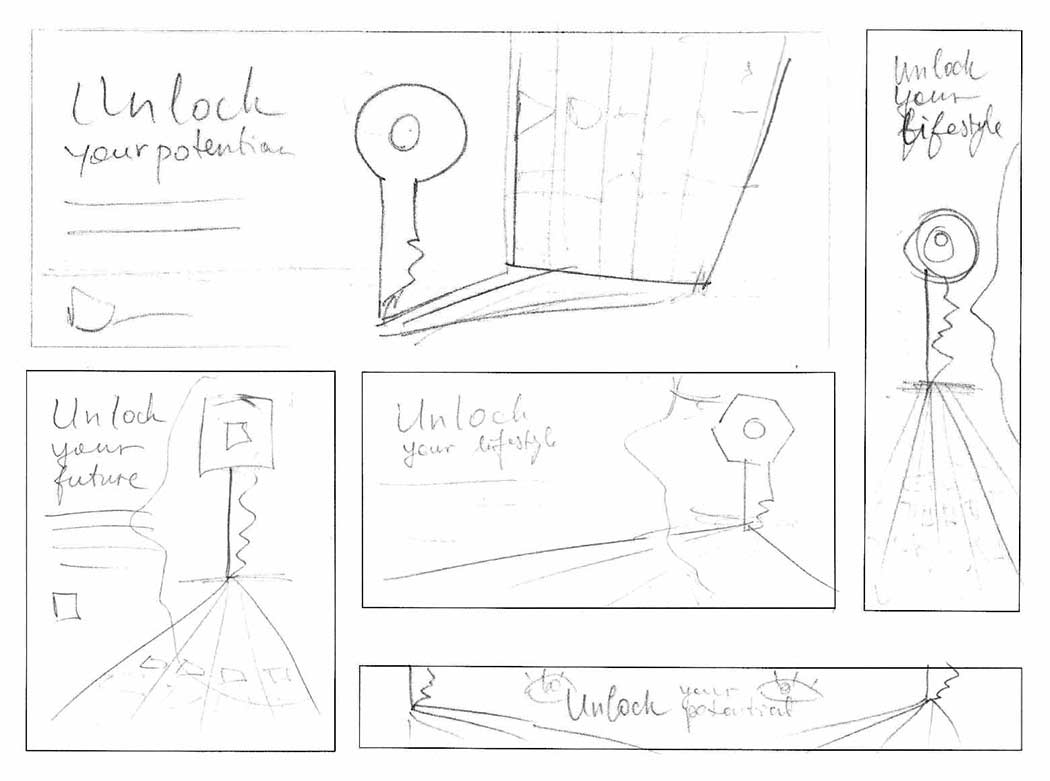 Unlock
your potential
Unlock
your
lifestyle
Unlock
your
future
Unlock
your lifestyle
Unlock your
potential